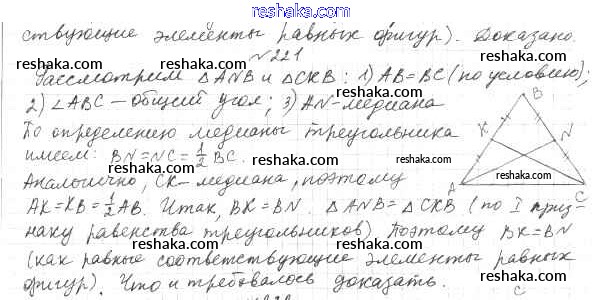 reshaka.com
ствующие элементы равных фигур). Доказано.
№221
Рассмотрим △ANB и △CKB: 1) AB=BC (по условию);
2) ∠ABC – общий угол; 3) AN – медиана
По определению медианы треугольника
имеем: BN=NC=1/2 BC.
Аналогично, CK – медиана, поэтому
AK=KB=1/2 AB. Итак, BK=BN. △ANB=△CKB (по I приз-
наку равенства треугольников). Поэтому BK=BN
(как равные соответствующие элементы равных
фигур). Что и требовалось доказать.
B
K
N
A
C
reshaka.com
reshaka.com
reshaka.com
reshaka.com
reshaka.com
reshaka.com
reshaka.com
reshaka.com
reshaka.com
reshaka.com
reshaka.com
reshaka.com
reshaka.com
reshaka.com